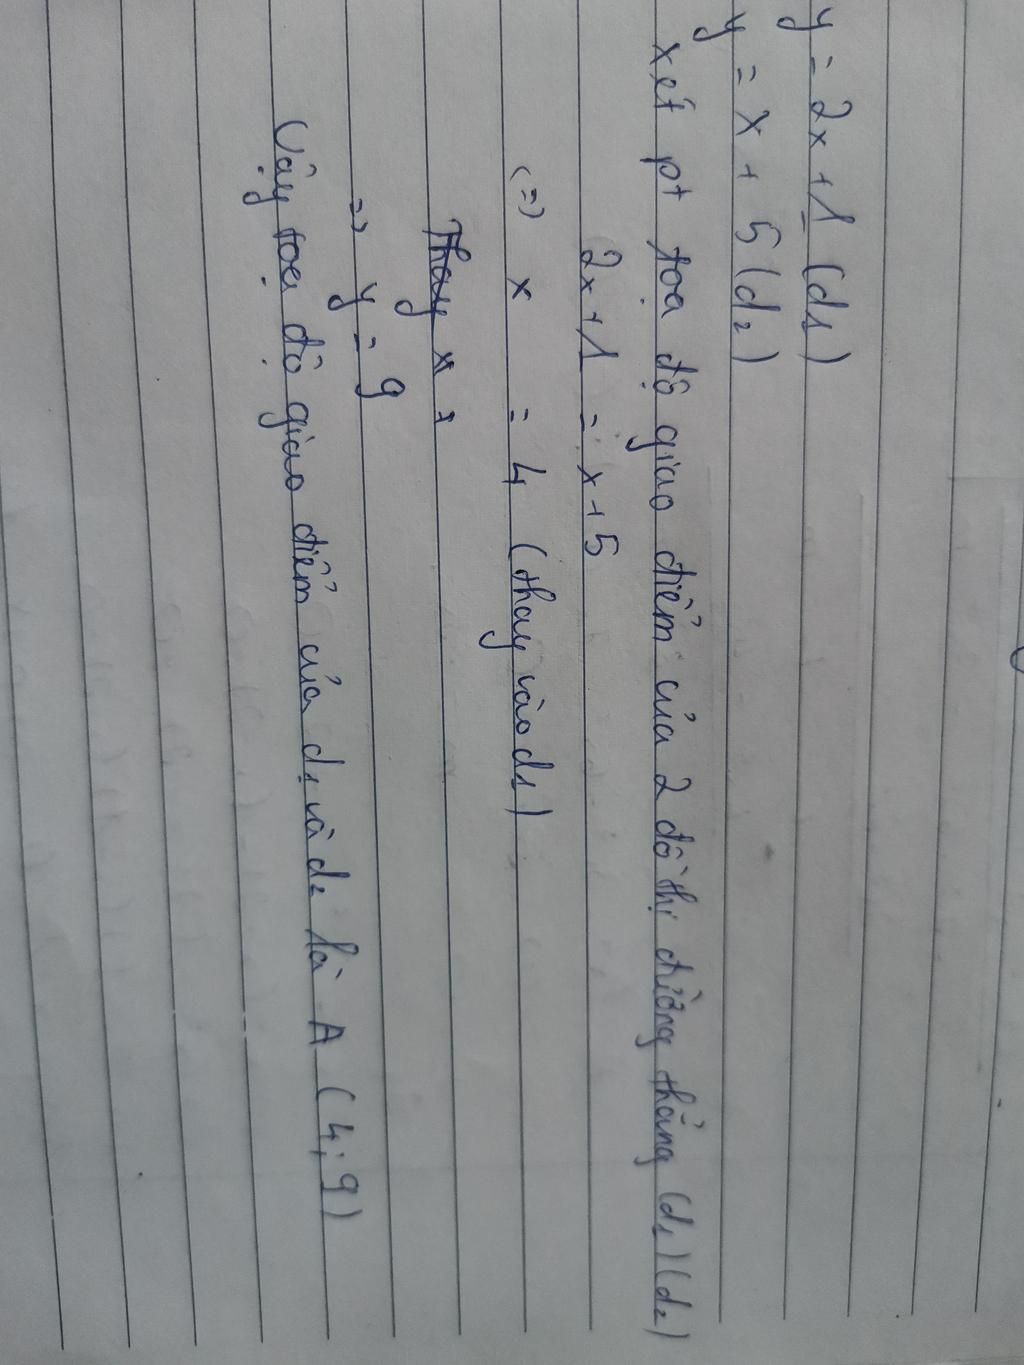 y = 2x + 1 (d₁)
y = x + 5 (d₂)
xét pt tọa độ giao điểm của 2 đồ thị đường thẳng (d₁) (d₂)
2x + 1 = x + 5
(=) x = 4 (thay vào d₁)
Thay x =
=> y = 9
Vậy tọa độ giao điểm của d₁ và d₂ là A (4; 9)